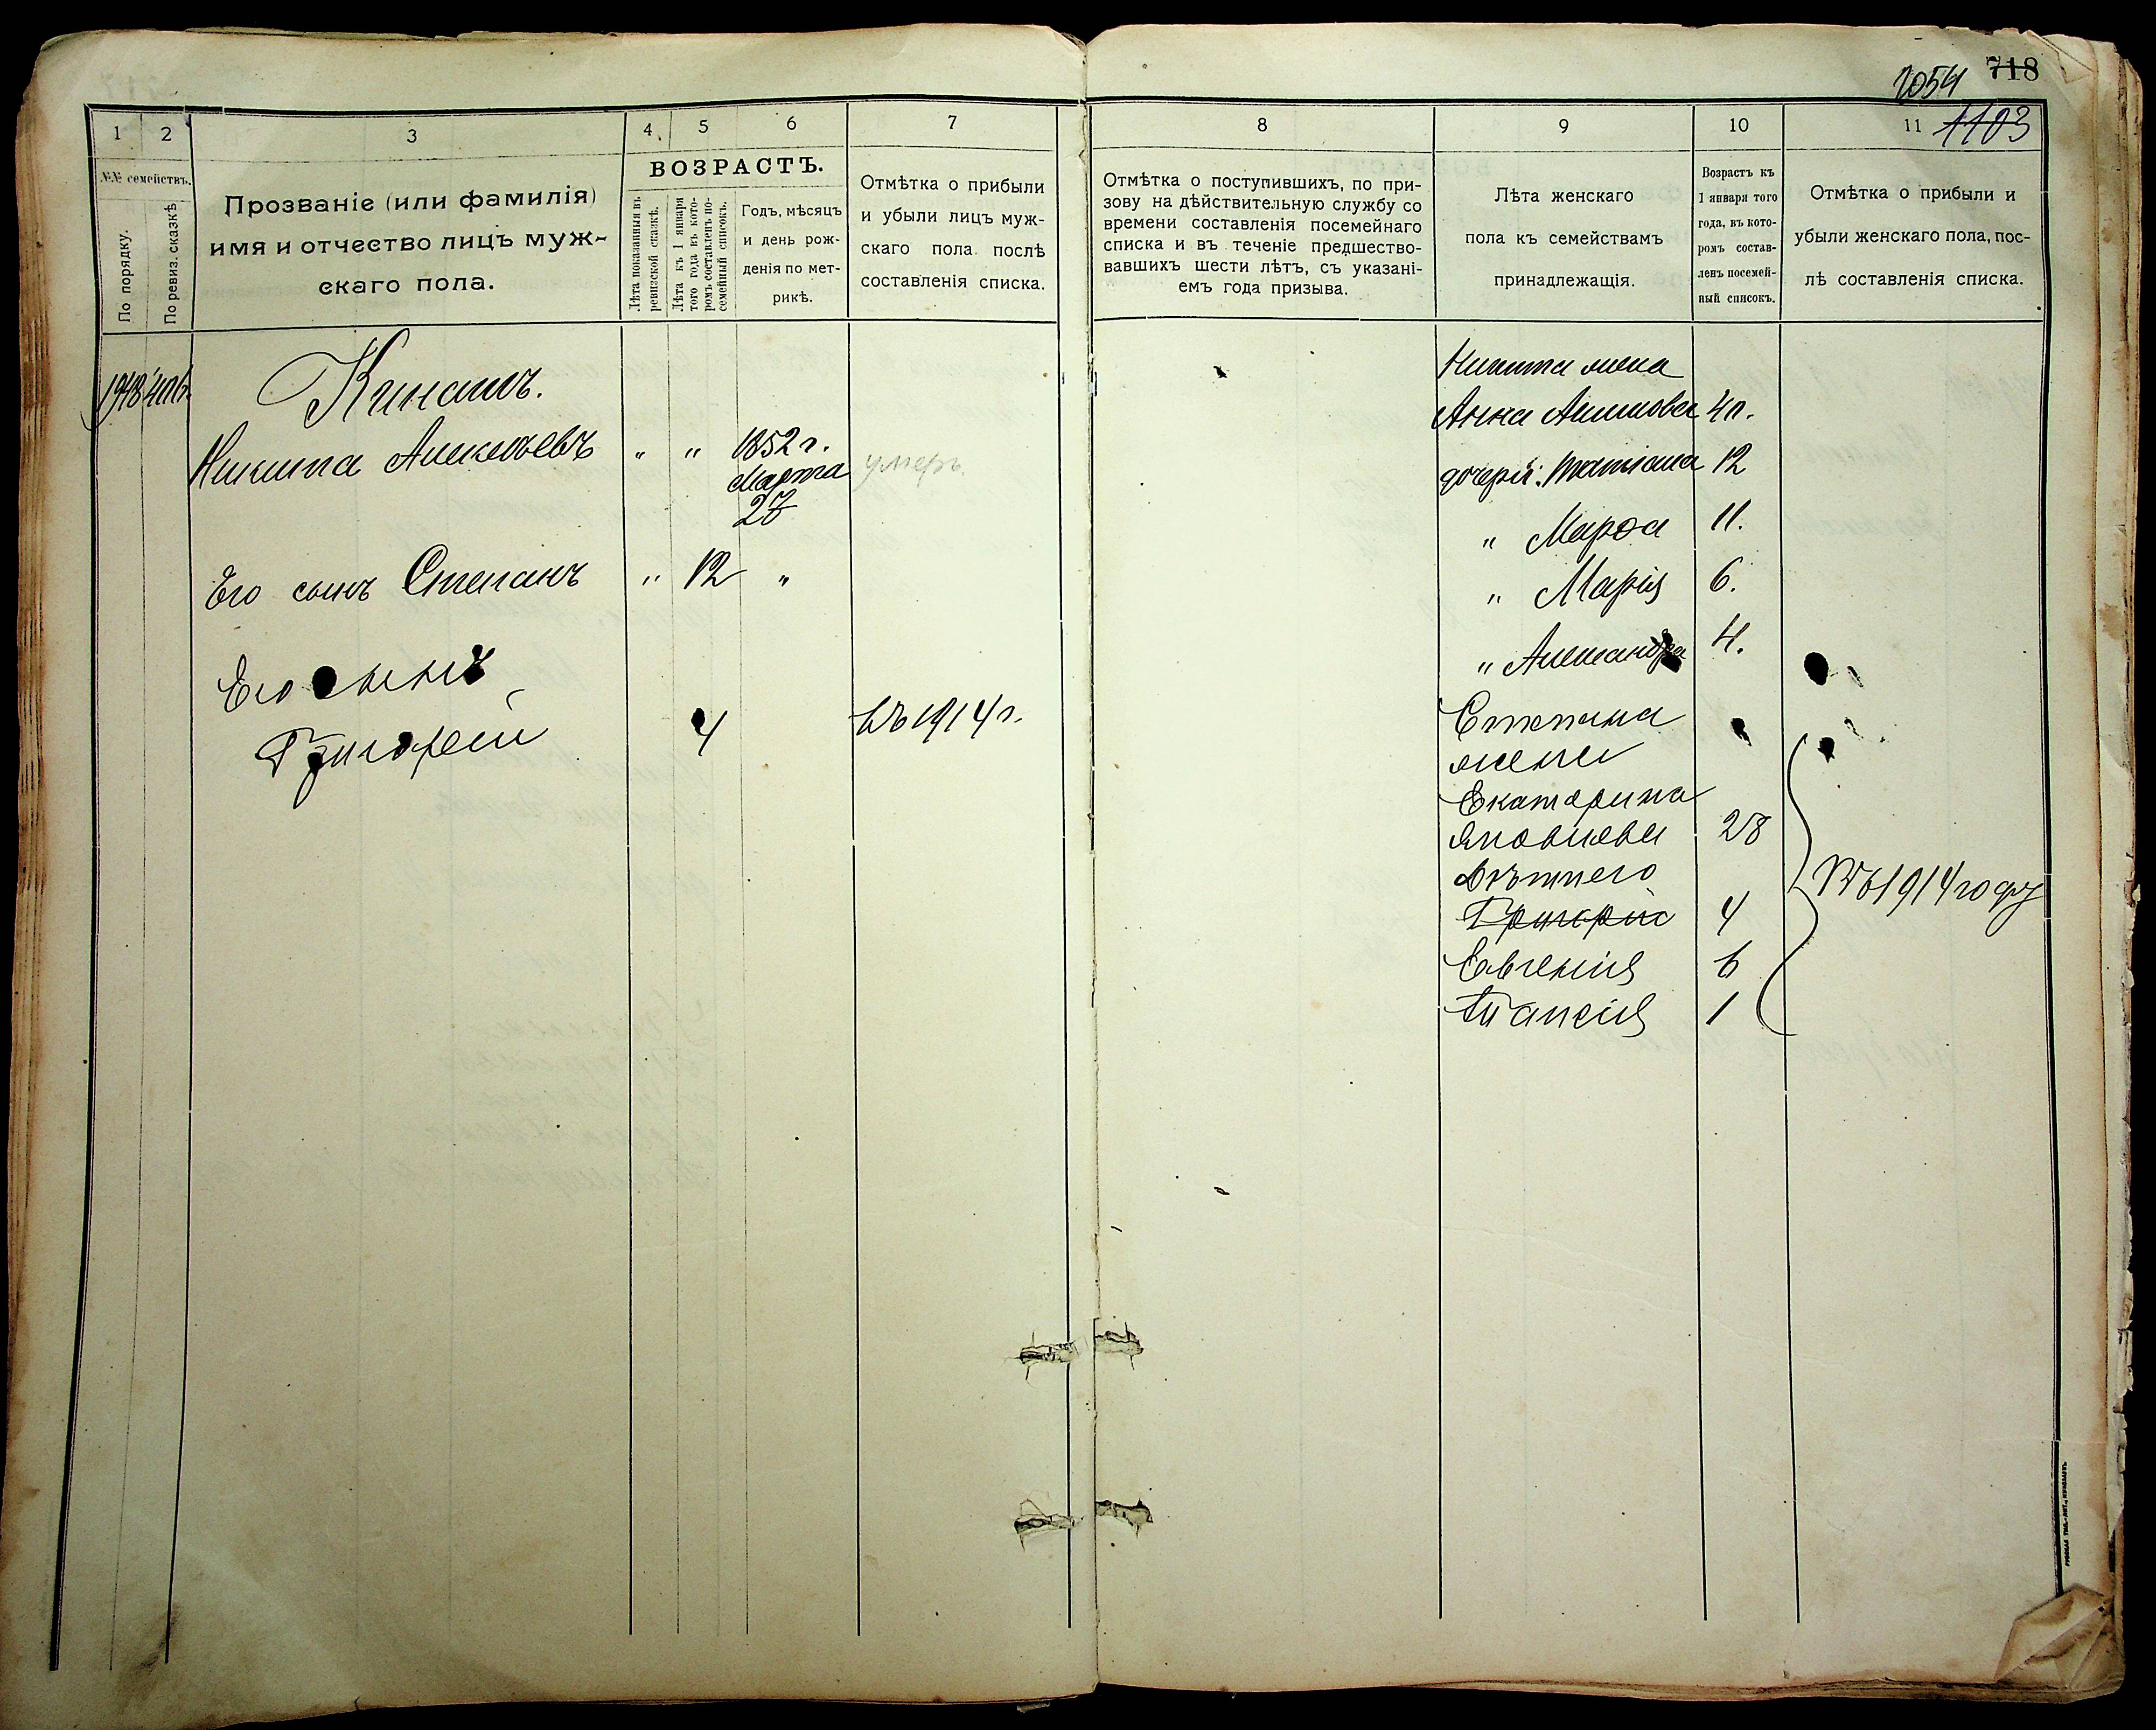 2054 718
1 2 3 4. 5 6 7 8 9 10 11 1103
№№ семействъ.
По порядку.
По ревиз. сказкѣ
Прозваніе (или фамилія)
имя и отчество лицъ муж-
скаго пола.
ВОЗРАСТЪ.
Лѣта показанныя въ
ревизской сказкѣ.
Лѣта къ 1 января
того года въ кото-
ромъ составленъ по-
семейный списокъ.
Годъ, мѣсяцъ
и день рож-
денія по мет-
рикѣ.
Отмѣтка о прибыли
и убыли лицъ муж-
скаго пола послѣ
составленія списка.
Отмѣтка о поступившихъ, по при-
зову на дѣйствительную службу со
времени составленія посемейнаго
списка и въ теченіе предшество-
вавшихъ шести лѣтъ, съ указані-
емъ года призыва.
Лѣта женскаго
пола къ семействамъ
принадлежащія.
Возрастъ къ
1 января того
года, въ кото-
ромъ состав-
ленъ посемей-
ный списокъ.
Отмѣтка о прибыли и
убыли женскаго пола, пос-
лѣ составленія списка.
Кинашъ.
Никита Алексѣевъ " " 1852 г.
Марта
27
умеръ.
Его сынъ Степанъ " 12 "
Его сынъ
Григорій 4 въ 1914 г.
Никита жена
Анна 40.
дочери: Татіана 12
" Марѳа 11.
" Марія 6.
" Александра 4.
Степана
жена
Екатерина
Яковлева 28
Григорій 4
Евгенія 6
Таисія 1
Въ 1914 году